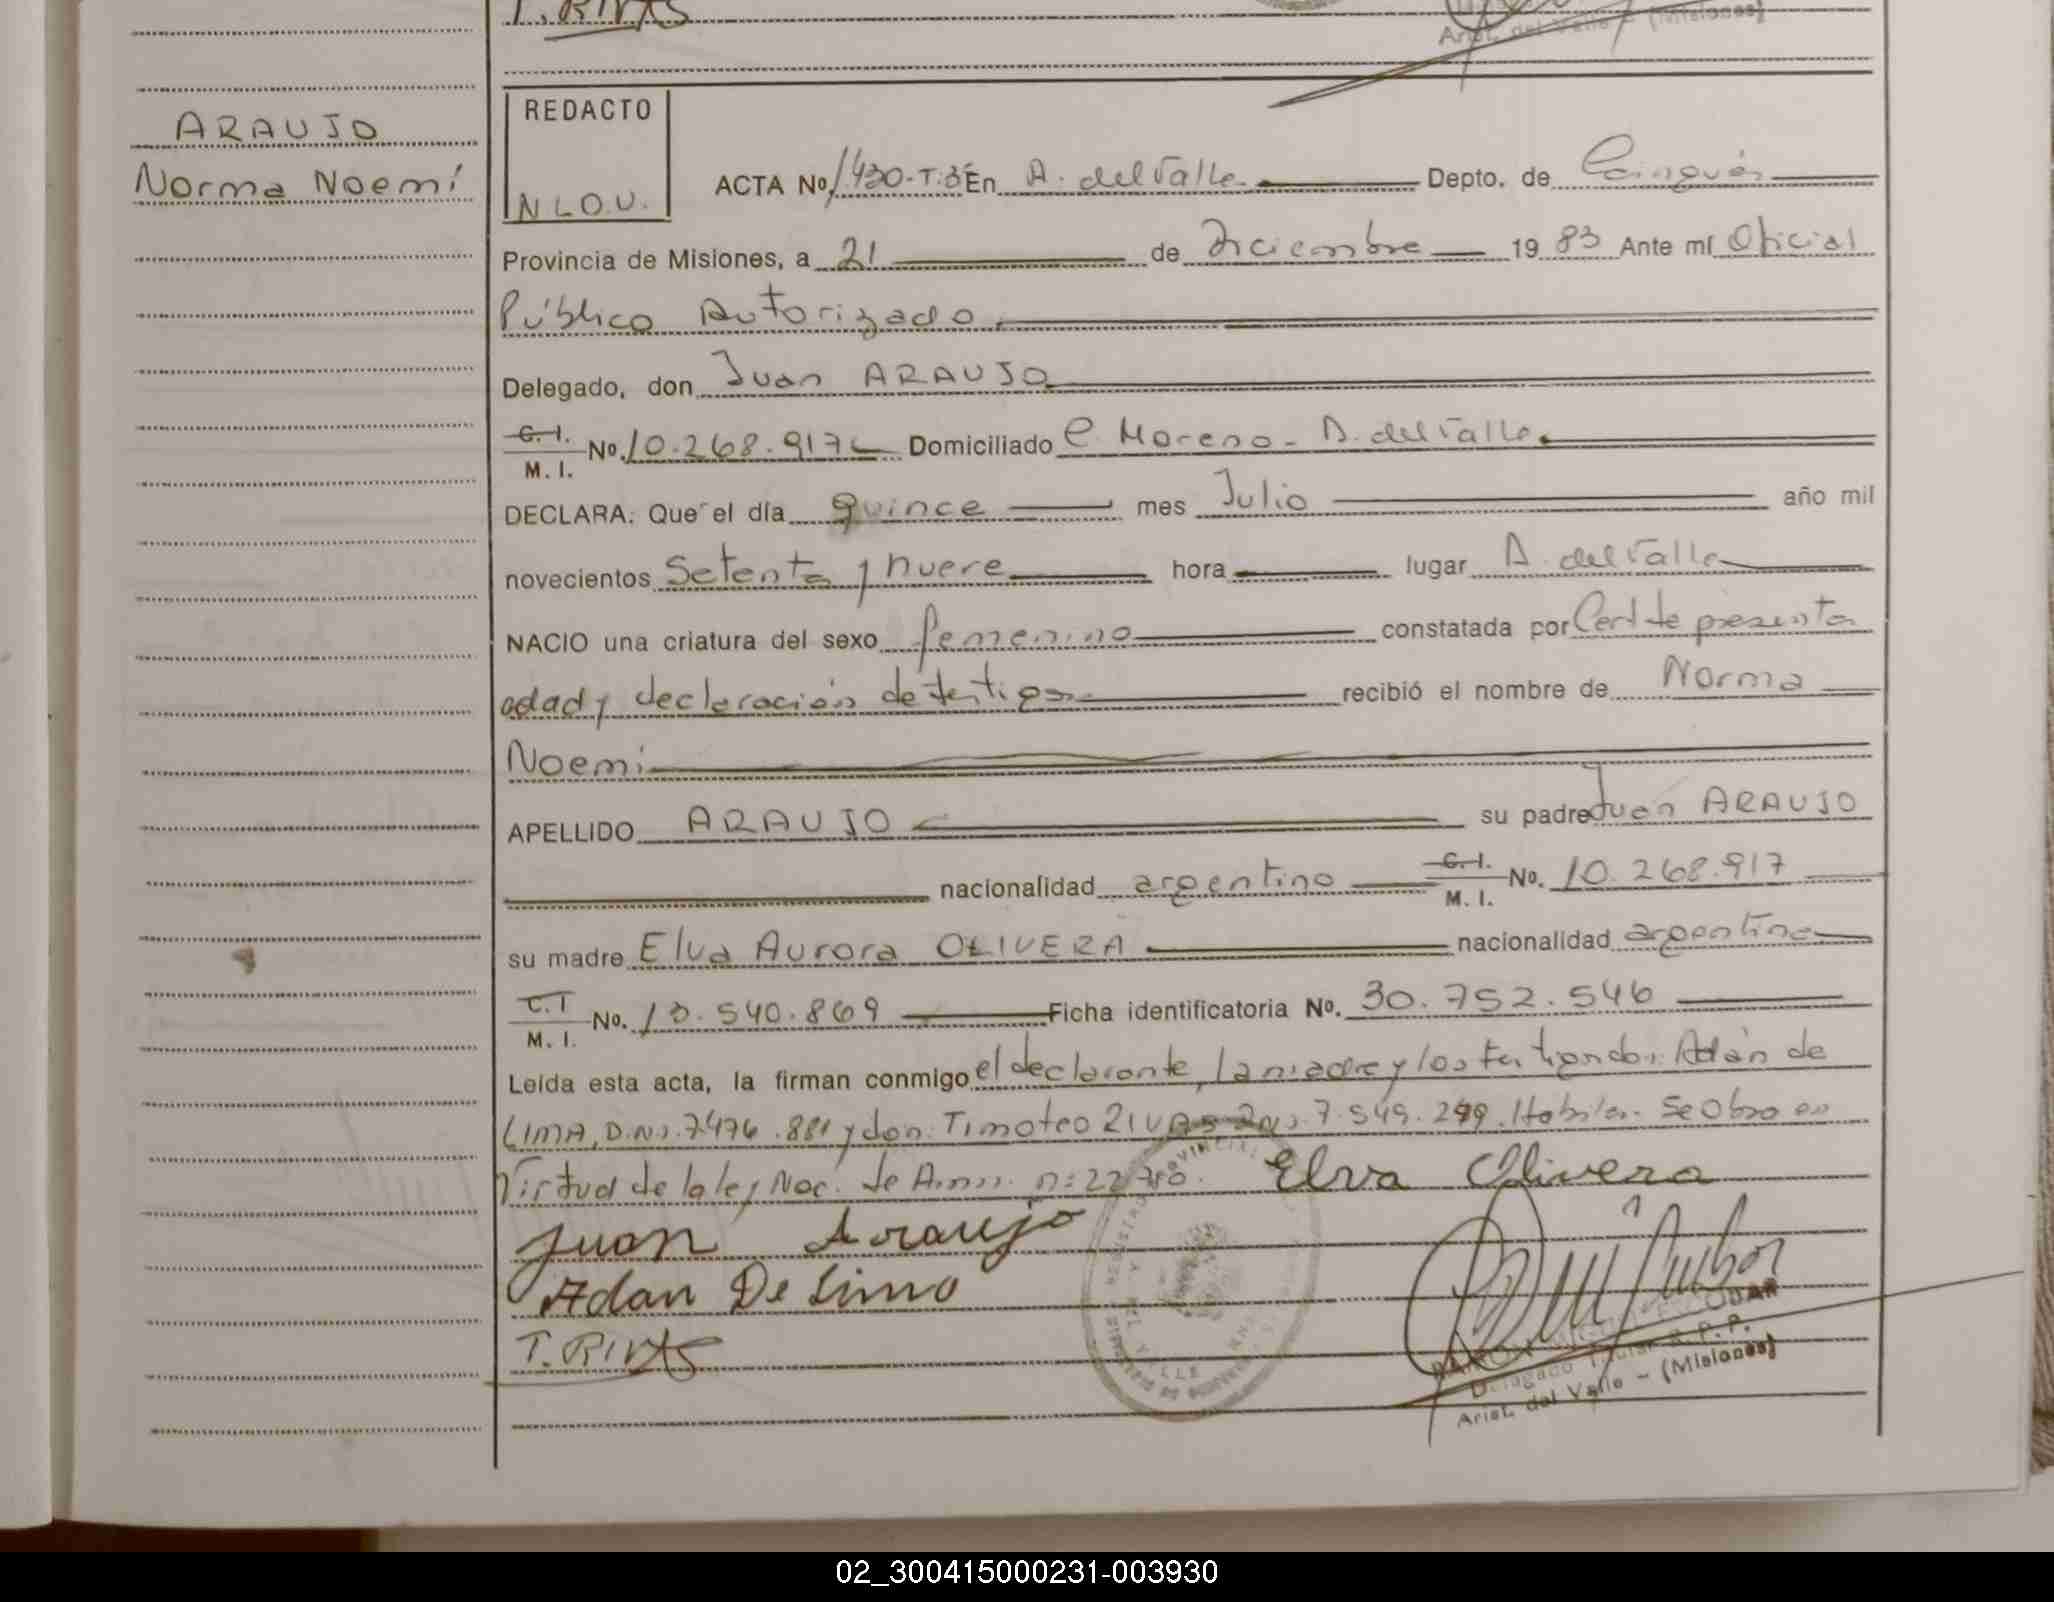 T. RIVAS
Arist. del Valle - (Misiones)
ARAUJO
Norma Noemí
REDACTO
N L O. U.
ACTA No 1.430-T:3 En A. del Valle Depto. de Cainguás
Provincia de Misiones, a 21 de Diciembre 1983 Ante mí Oficial
Público Autorizado.
Delegado, don Juan ARAUJO
C. I. M. I. No. 10.268.917 Domiciliado C. Moreno - A. del Valle.
DECLARA: Que el día quince mes Julio año mil
novecientos Setenta y nueve hora lugar A. del Valle
NACIO una criatura del sexo femenino constatada por Cert de presunta
edad y declaración de testigos recibió el nombre de Norma
Noemi
APELLIDO ARAUJO su padre Juan ARAUJO
nacionalidad argentino C. I. M. I. No. 10.268.917
su madre Elva Aurora OLIVERA nacionalidad argentina
C. I M. I. No. 13.540.869 Ficha identificatoria No. 30.752.546
Leída esta acta, la firman conmigo el declarante, la madre y los testigos don: Adán de
LIMA, D.N.I. 7.476.881 y don: Timoteo RIVAS D.N.I. 7.549.299. Habiles. Se Obro en
Virtud de la ley Nac. de Amn. n: 22.710. Elva Olivera
Juan Araujo
Adan De Lima
T. RIVAS
ESCOBAR
Delegado Titular R. P. P.
Arist. del Valle - (Misiones)
02_300415000231-003930